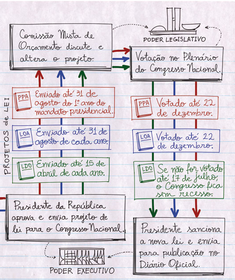 Comissão Mista de
Orçamento discute e
altera o projeto.
PODER LEGISLATIVO
Votação no Plenário
do Congresso Nacional.
PROJETOS de LEI
PPA
Enviado até 31 de
agosto do 1º ano do
mandato presidencial.
LOA
Enviado até 31 de
agosto de cada ano.
LDO
Enviado até 15 de
abril de cada ano.
PPA
Votado até 22
de dezembro.
LOA
Votado até 22
de dezembro.
LDO
Se não for votado
até 17 de julho,
o Congresso fica
sem recesso.
Presidente da República
aprova e envia projeto de
lei para o Congresso Nacional.
PODER EXECUTIVO
Presidente sanciona
a nova lei e envia
para publicação no
Diário Oficial.